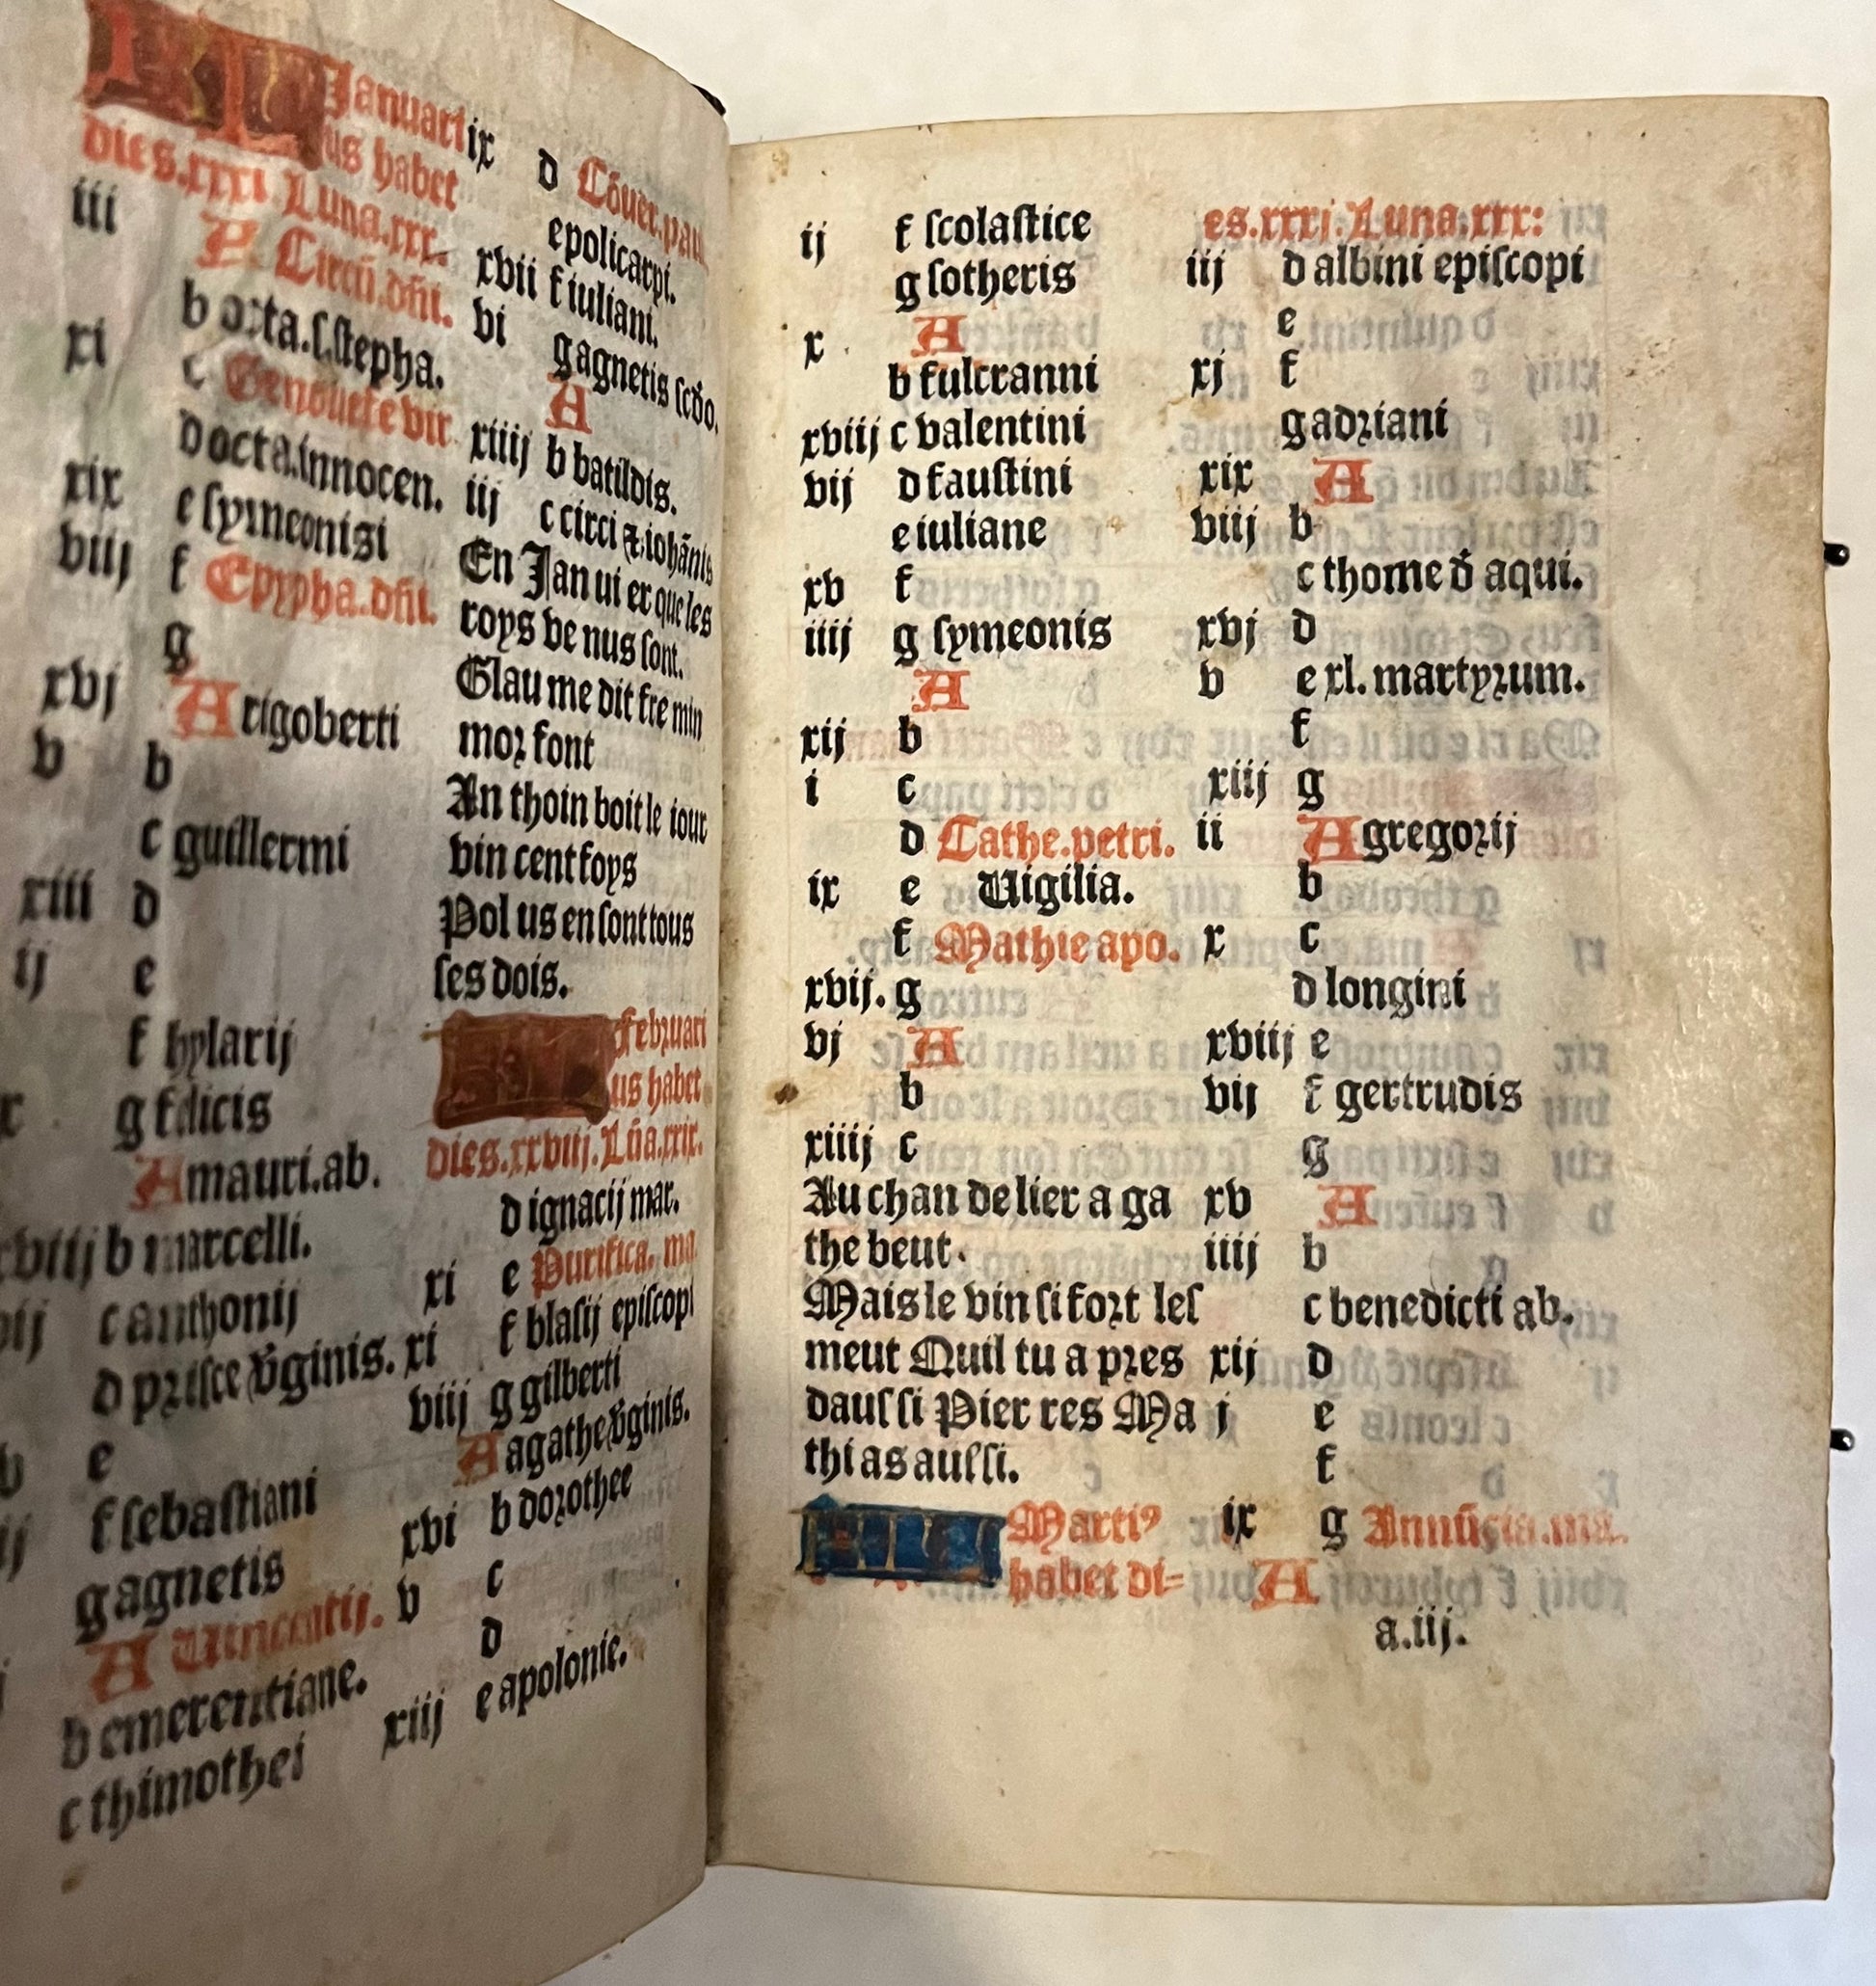 Januari
us habet
dies.xxxi Luna.xxx.
iii A Circū.dñi.
b octa.s.stepha.
xi c Genouefe vir
d octa.innocen.
xix e symeonisi
viij f Epypha.dñi.
g
xvj A rigoberti
v b
c guillermi
xiii d
ij e
f hylarij
x g felicis
A mauri.ab.
xviij b marcelli.
vij c anthonij
d prisce v̄ginis.
xv e
iiij f sebastiani
g agnetis
A Vincentij.
b emerentiane.
c thimothei
ix d Cōuer.pau
e policarpi.
xvii f iuliani.
vi g agnetis scđo.
A
xiiij b batildis.
iij c circi & iohānis
En Jan ui er que les
roys ve nus sont.
Glau me dit fre min
mor font
An thoin boit le iour
vin cent foys
Pol us en sont tous
ses dois.
Februari
us habet
dies.xxviij.Lūa.xxix.
d ignacij mar.
xi e Purifica. ma
xi f blasij episcopi
viij g gilberti
A agathe v̄ginis.
xvi b dorothee
v c
d
xiij e apolonie.
ij f scolastice
g sotheris
x A
b fulcranni
xviij c valentini
vij d faustini
e iuliane
xv f
iiij g symeonis
A
xij b
i c
d Cathe.petri.
ix e Vigilia.
f Mathie apo.
xvij. g
vj A
b
xiiij c
Au chan de lier a ga
the beut.
Mais le vin si fort les
meut Quil tu a pres
daus si Pier res Ma
thi as aussi.
Marti⁹
habet di=
es.xxxj.Luna.xxx:
iij d albini episcopi
e
xj f
g adriani
xix A
viij b
c thome đ aqui.
xvj d
v e xl. martyrum.
f
xiij g
ii A gregorij
b
x c
d longini
xviij e
vij f gertrudis
g
xv A
iiij b
c benedicti ab.
xij d
j e
f
ix g Annūcia.ma.
A
a.iij.